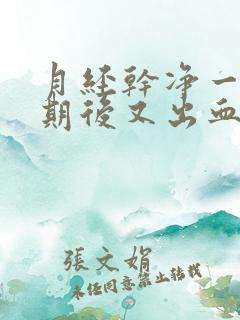 月经幹净一
期後又出血
張文娟
未经同意禁止转载